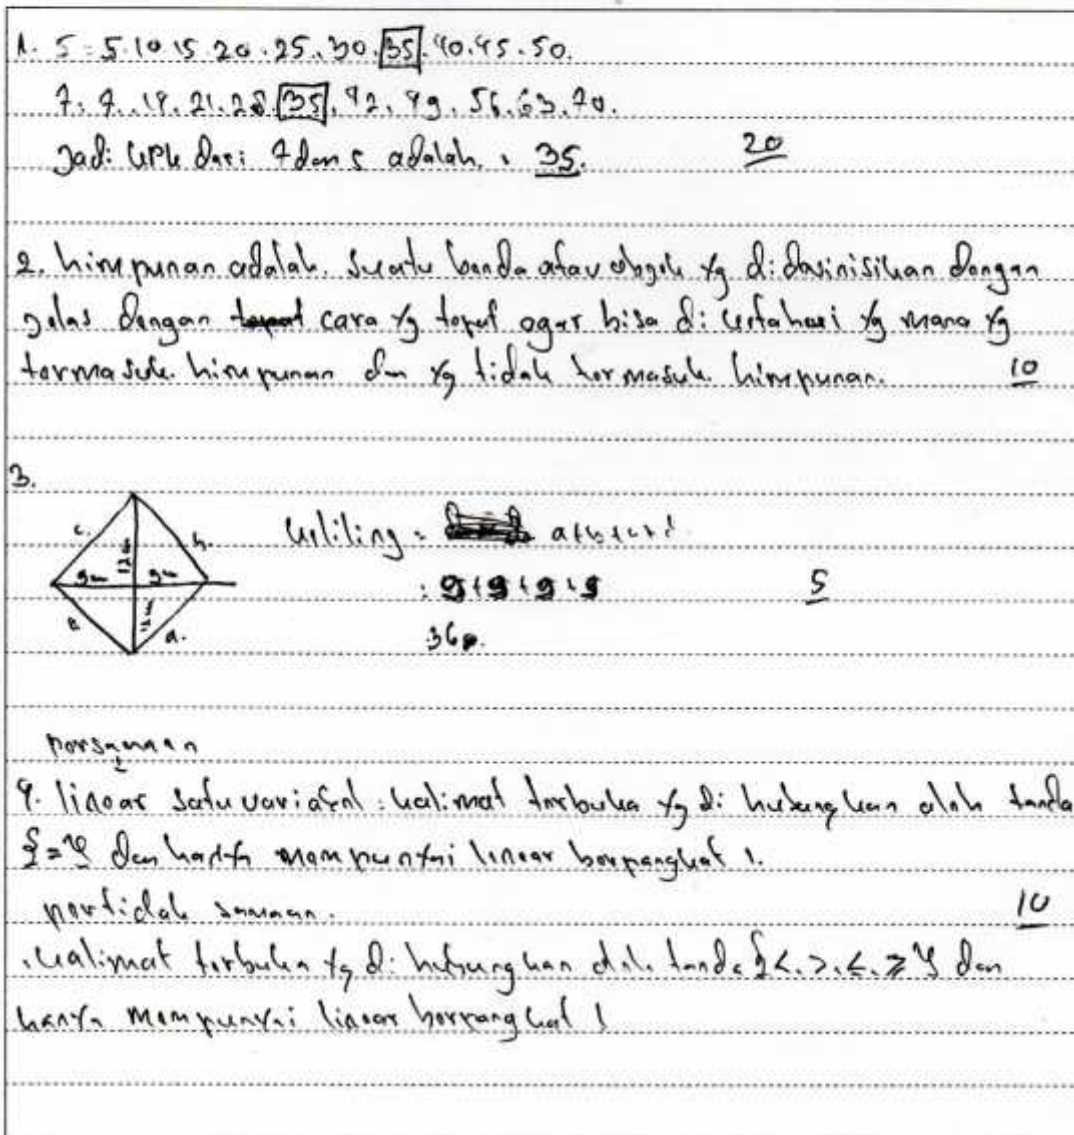 1. 5 = 5.10.15.20.25.30.35.40.45.50.
7: 7.14.21.28.35.42.49.56.63.70.
Jadi KPK dari 7 dan 5 adalah : 35. 20
2. himpunan adalah. Suatu benda atau objek yg di definisikan dengan
jelas dengan cara yg tepat agar bisa di ketahui yg mana yg
termasuk himpunan dan yg tidak termasuk himpunan. 10
3.
c. 12 cm b.
9 cm 9 cm
a.
Keliling = a+b+c+d
: 9+9+9+9 5
36
persamaan
4. linear satu variabel : kalimat terbuka yg di hubungkan oleh tanda
{=} dan hanya mempunyai linear berpangkat 1.
pertidak samaan. 10
. kalimat terbuka yg di hubungkan oleh tanda {<.>.≤.≥} dan
hanya mempunyai linear berpangkat 1